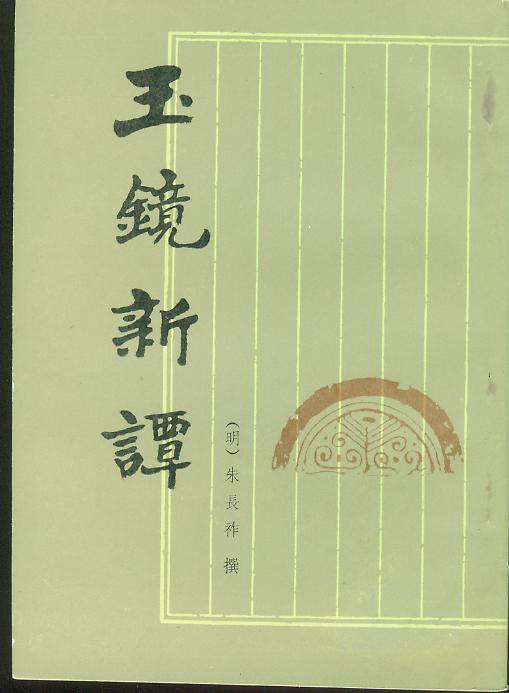 玉鏡新譚
(明)朱長祚 撰